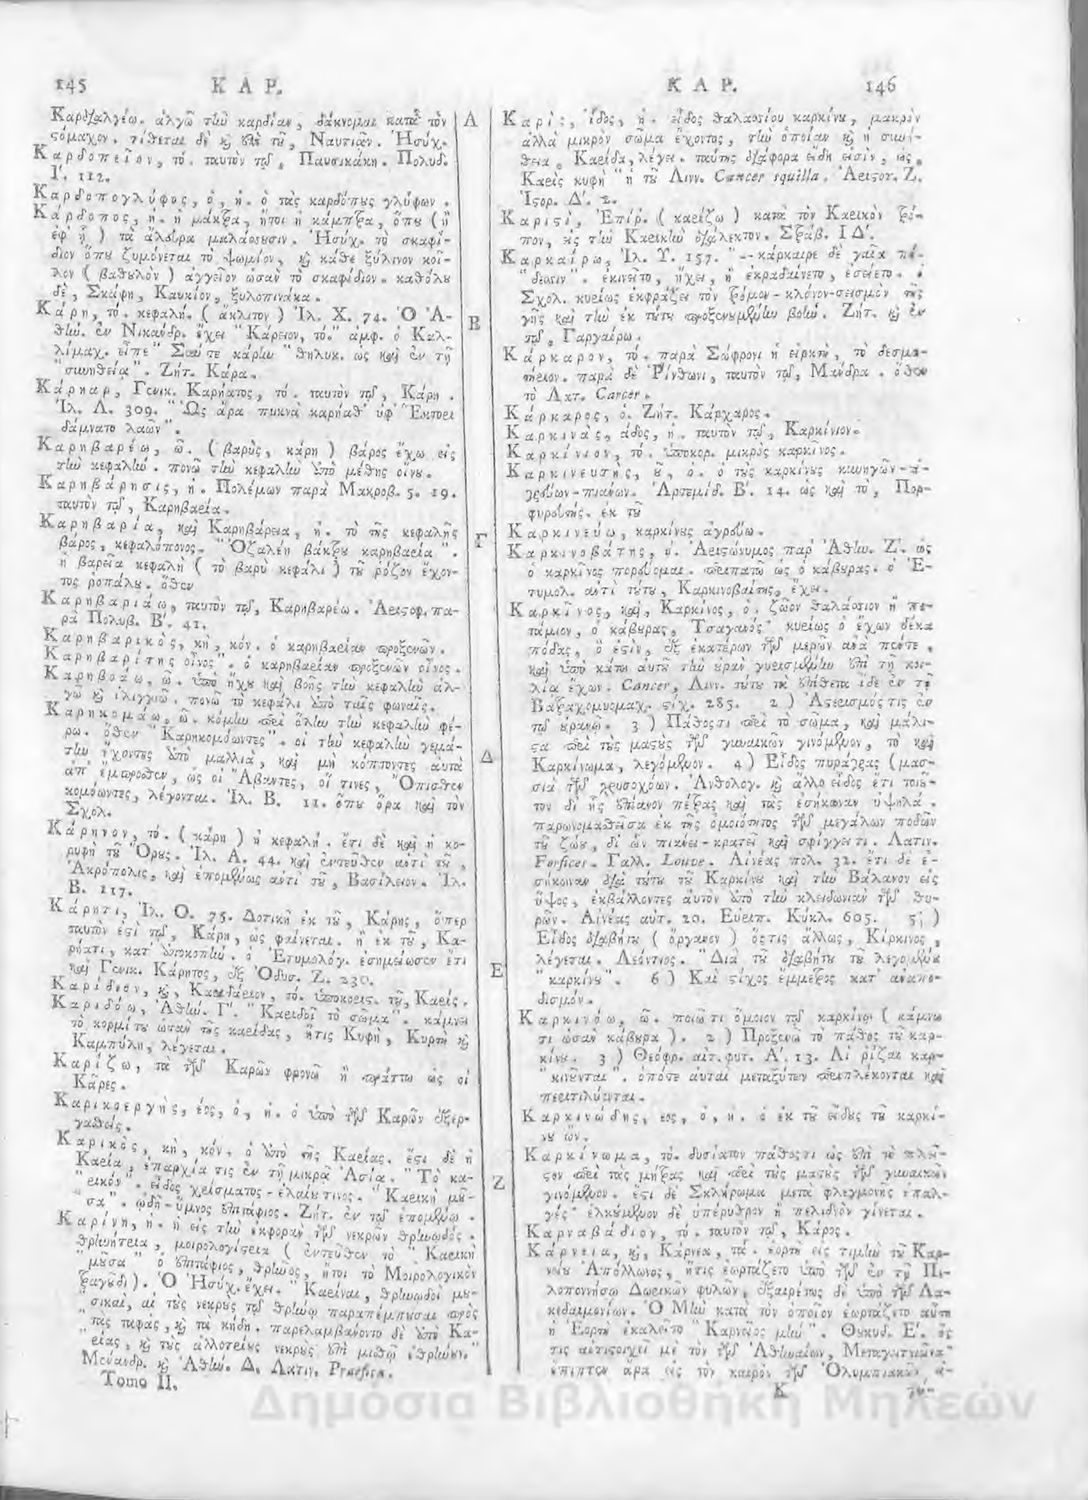 145 ΚΑΡ.
Καρδιαλγέω. ἀλγῶ τὴν καρδίαν, δάκνομαι κατὰ τὸν
στόμαχον. τίθεται δὲ καὶ ἐπὶ τοῦ, Ναυτιᾶν. Ἡσύχ.
Καρδοπεῖον, τό. ταυτὸν τῷ, Παυσικάπη. Πολυδ.
Ι΄. 112.
Καρδοπογλύφος, ὁ, ἡ. ὁ τὰς καρδόπους γλύφων.
Κάρδοπος, ἡ. ἡ μάκτρα, ἤτοι ἡ κάμπτρα, ὅπου (ἢ
ἐφ' ᾗ) τὰ ἄλευρα μαλάσσουσιν. Ἡσύχ. τὸ σκαφί-
διον ὅπου ζυμόνεται τὸ ψωμίον, καὶ κάθε ξύλινον κοῖ-
λον (βαθουλὸν) ἀγγεῖον ὡσὰν τὸ σκαφίδιον. καθόλου
δὲ, Σκάφη, Καυκίον, ξυλοπινάκα.
Κάρη, τό. κεφαλή. (ἄκλιτον) Ἰλ. Χ. 74. Ὁ Ἀ-
θην. ἐν Νικάνδρ. ἔχει "Κάρειον, τό." ἀμφ. ὁ Καλ-
λίμαχ. εἶπε "Σαύτε κάρην" θηλυκ. ὡς καὶ ἐν τῇ
"συνηθείᾳ". Ζήτ. Κάρα.
Κάρηαρ, Γενικ. Καρήατος, τό. ταυτὸν τῷ, Κάρη.
Ἰλ. Λ. 309. "Ὣς ἄρα πυκνὰ καρήαθ' ὑφ' Ἕκτορι
δάμνατο λαῶν".
Καρηβαρέω, ῶ. (βαρὺς, κάρη) βάρος ἔχω εἰς
τὴν κεφαλήν. πονῶ τὴν κεφαλὴν ὑπὸ μέθης οἴνου.
Καρηβάρησις, ἡ. Πολέμων παρὰ Μακροβ. 5. 19.
ταυτὸν τῷ, Καρηβαρία.
Καρηβαρία, καὶ Καρηβάρεια, ἡ. τὸ τῆς κεφαλῆς
βάρος, κεφαλόπονος. "Ὀζαλέη βάκτρου καρηβαρία".
ἡ βαρεῖα κεφαλὴ (τὸ βαρὺ κεφάλι) τοῦ ῥόζον ἔχον-
τος ῥοπάλου. ὅθεν
Καρηβαριάω, ταυτὸν τῷ, Καρηβαρέω. Ἀριστοφ. πα-
ρὰ Πολυβ. Β΄. 41.
Καρηβαρικὸς, κὴ, κόν. ὁ καρηβαρίαν προξενῶν.
Καρηβαρίτης οἶνος". ὁ καρηβαρίαν προξενῶν οἶνος.
Καρηβοάω, ῶ. ὑπὸ ἤχου καὶ βοῆς τὴν κεφαλὴν ἀλ-
γῶ καὶ ἰλιγγιῶ. πονῶ τὸ κεφάλι ἀπὸ ταῖς φωναῖς.
Καρηκομάω, ῶ. κόμην περὶ ὅλην τὴν κεφαλὴν φέ-
ρω. ὅθεν "Καρηκομόωντες". οἱ τὴν κεφαλὴν γεμά-
την ἔχοντες ἀπὸ μαλλιὰ, καὶ μὴ κόπτοντες αὐτὰ
ἀπ' ἔμπροσθεν, ὡς οἱ Ἄβαντες, οἵ τινες, Ὄπισθεν
κομόωντες, λέγονται. Ἰλ. Β. 11. ὅπου ὅρα καὶ τὸν
Σχόλ.
Κάρηνον, τό. (κάρη) ἡ κεφαλή. ἔτι δὲ καὶ ἡ κο-
ρυφὴ τοῦ Ὄρους. Ἰλ. Α. 44. καὶ ἐντεῦθεν ἀντὶ τοῦ,
Ἀκρόπολις, καὶ ἑπομένως ἀντὶ τοῦ, Βασίλειον. Ἰλ.
Β. 117.
Κάρητι, Ἰλ. Ο. 75. Δοτικὴ ἐκ τοῦ, Κάρης, ὅπερ
ταυτόν ἐστι τῷ, Κάρη, ὡς φαίνεται. ἢ ἐκ τοῦ, Κα-
ρήατι, κατ' ἀποκοπήν. ὁ Ἐτυμολόγ. ἐσημείωσεν ἔτι
καὶ Γενικ. Κάρητος, ἐξ Ὀδυσ. Ζ. 230.
Καρίδιον, καὶ, Καριδάριον, τό. ὑποκορις. τοῦ, Καρίς.
Καριδόω, Ἀθην. Γ΄. "Καριδοῖ τὸ σῶμα". κάμνει
τὸ κορμί του ὡσὰν τῆς καρίδας, ἥτις Κυφὴ, Κυρτὴ καὶ
Καμπύλη, λέγεται.
Καρίζω, τὰ τῶν Καρῶν φρονῶ ἢ πράττω ὡς οἱ
Κᾶρες.
Καρικοεργὴς, έος, ὁ, ἡ. ὁ ὑπὸ τῶν Καρῶν ἐξερ-
γασθείς.
Καρικὸς, κὴ, κόν. ὁ ἀπὸ τῆς Καρίας. ἔστι δὲ ἡ
Καρία, ἐπαρχία τις ἐν τῇ μικρᾷ Ἀσίᾳ. "Τὸ κα-
"ρικόν". εἶδος χρίσματος-ἐλαίου τινος. "Καρικὴ μοῦ-
σα". ᾠδὴ-ὕμνος ἐπιτάφιος. Ζήτ. ἐν τῷ ἑπομένῳ.
Καρίνη, ἡ. ἡ εἰς τὴν ἐκφορὰν τῶν νεκρῶν θρηνῳδὸς.
θρηνήτρια, μοιρολογίστρια (ἐντεῦθεν τὸ "Καρικὴ
"μοῦσα" ὁ ἐπιτάφιος, θρῆνος, ἤτοι τὸ Μοιρολογικὸν
τραγούδι). Ὁ Ἡσύχ. ἔχει. "Καρῖναι, θρηνῳδοὶ μου-
"σικαὶ, αἱ τοὺς νεκροὺς τῷ θρήνῳ παραπέμπουσαι πρὸς
"τὰς ταφὰς, καὶ τὰ κήδη. παρελαμβάνοντο δὲ ἀπὸ Κα-
"ρίας, καὶ τοὺς ἀλλοτρίους νεκροὺς ἐπὶ μισθῷ ἐθρήνουν."
Μενάνδρ. καὶ Ἀθην. Δ. Λατιν. Præfica.
Tomo II.
Α
Β
Γ
Δ
Ε
Ζ
ΚΑΡ. 146
Καρὶς, ίδος, ἡ. εἶδος θαλασσίου καρκίνου, μακρὸν
ἀλλὰ μικρὸν σῶμα ἔχοντος, τὴν ὁποίαν καὶ ἡ συνή-
θεια, Καρίδα, λέγει. ταύτης διάφορα εἴδη εἰσὶν, ὡς,
Καρὶς κυφὴ "ἡ τοῦ Λινν. Cancer squilla. Ἀριστοτ. Ζ.
Ἱστορ. Δ΄. 2.
Καριστὶ, Ἐπίρ. (καρίζω) κατὰ τὸν Καρικὸν τρό-
πον, εἰς τὴν Καρικὴν διάλεκτον. Στράβ. ΙΔ΄.
Καρκαίρω, Ἰλ. Υ. 157. "--κάρκαιρε δὲ γαῖα πό-
"δεσσιν". ἐκινεῖτο, ἤχει, ἢ ἐκραδαίνετο, ἐσείετο. ὁ
Σχολ. κυρίως ἐκφράζει τὸν τρόμον-κλόνον-σεισμὸν τῆς
γῆς καὶ τὴν ἐκ τούτου προξενουμένην βοήν. Ζήτ. καὶ ἐν
τῷ, Γαργαίρω.
Κάρκαρον, τό. παρὰ Σώφρονι ἡ εἱρκτὴ, τὸ δεσμω-
τήριον. παρὰ δὲ Ῥίνθωνι, ταυτὸν τῷ, Μάνδρα. ὅθεν
τὸ Λατ. Carcer.
Κάρκαρος, ὁ. Ζήτ. Κάρχαρος.
Καρκινὰς, άδος, ἡ. ταυτὸν τῷ, Καρκίνιον.
Καρκίνιον, τό. ὑποκορ. μικρὸς καρκῖνος.
Καρκινευτὴς, οῦ, ὁ. ὁ τοὺς καρκίνους κυνηγῶν-ἀ-
γρεύων-πιάνων. Ἀρτεμίδ. Β΄. 14. ὡς καὶ τὸ, Πορ-
φυρευτής. ἐκ τοῦ
Καρκινεύω, καρκίνους ἀγρεύω.
Καρκινοβάτης, ὁ. Ἀριστώνυμος παρ' Ἀθην. Ζ΄. ὡς
ὁ καρκῖνος πορεύομαι. περιπατῶ ὡς ὁ κάβουρας. ὁ Ἐ-
τυμολ. ἀντὶ τούτου, Καρκινοβαίτης, ἔχει.
Καρκῖνος, καὶ, Καρκίνος, ὁ. ζῶον θαλάσσιον ἢ πο-
τάμιον, ὁ κάβουρας, Τσαγανός· κυρίως ὁ ἔχων δέκα
πόδας, ὅ ἐστιν, ἐξ ἑκατέρων τῶν μερῶν ἀνὰ πέντε,
καὶ ὑπὸ κάτω αὐτοῦ τὴν οὐρὰν γυρισμένην ἐπὶ τῇ κοι-
λίᾳ ἔχων. Cancer, Λινν. τούτου τὰ ἐπίθετα ἴδε ἐν τῇ
Βατραχομυομαχ. στίχ. 285. 2) Ἀστερισμός τις ἐν
τῷ οὐρανῷ. 3) Πάθος τι περὶ τὸ σῶμα, καὶ μάλι-
στα περὶ τοὺς μαστοὺς τῶν γυναικῶν γινόμενον, τὸ καὶ
Καρκίνωμα, λεγόμενον. 4) Εἶδος πυράγρας (μασ-
σιὰ τῶν χρυσοχόων. Ἀνθολογ. καὶ ἄλλο εἶδος ἔτι τοιοῦ-
τον δι' ἧς ἔπιανον πέτρας καὶ τὰς ἐσήκωναν ὑψηλά.
παρωνομασθεῖσα ἐκ τῆς ὁμοιότητος τῶν μεγάλων ποδῶν
τοῦ ζώου, δι' ὧν πιάνει-κρατεῖ καὶ σφίγγει τι. Λατιν.
Forfices. Γαλλ. Louve. Αἰνέας πολ. 32. ἔτι δὲ ἐ-
σήκωναν διὰ τούτου τοῦ Καρκίνου καὶ τὴν Βάλανον εἰς
ὕψος, ἐκβάλλοντες αὐτὸν ἀπὸ τὴν κλειδωνιὰν τῶν θυ-
ρῶν. Αἰνέας αὐτ. 20. Εὐριπ. Κύκλ. 605. 5;)
Εἶδος διαβήτου (ὄργανον) ὅστις ἄλλως, Κίρκινος,
λέγεται. Λεόντιος. "Διὰ τοῦ διαβήτου τοῦ λεγομένου
"καρκίνου". 6) Καὶ στίχος ἔμμετρος κατ' ἀναπο-
δισμόν.
Καρκινόω, ῶ. ποιῶ τι ὅμοιον τῷ καρκίνῳ (κάμνω
τι ὡσὰν κάβουρα). 2) Προξενῶ τὸ πάθος τοῦ καρ-
κίνου. 3) Θεόφρ. αἰτ. φυτ. Α΄. 13. Αἱ ῥίζαι καρ-
"κινοῦνται". ὁπότε αὐταὶ μεταξύτων περιπλέκονται καὶ
περιτυλίσσονται.
Καρκινώδης, εος, ὁ, ἡ. ὁ ἐκ τοῦ εἴδους τοῦ καρκί-
νου ὤν.
Καρκίνωμα, τό. δυσίατον πάθος τι ὡς ἐπὶ τὸ πλεῖ-
στον περὶ τὰς μήτρας καὶ περὶ τοὺς μαστοὺς τῶν γυναικῶν
γινόμενον. ἔστι δὲ Σκλήρωμα μετὰ φλεγμονῆς ἐπαλ-
γές· ἑλκούμενον δὲ ὑπέρυθρον ἢ πελιδνὸν γίνεται.
Καρναβάδιον, τό. ταυτὸν τῷ, Κάρος.
Κάρνεια, καὶ, Κάρνεα, τά. ἑορτὴ εἰς τιμὴν τοῦ Καρ-
νείου Ἀπόλλωνος, ἥτις ἑωρτάζετο ὑπὸ τῶν ἐν τῇ Πε-
λοποννήσῳ Δωρικῶν φυλῶν, ἐξαιρέτως δὲ ὑπὸ τῶν Λα-
κεδαιμονίων. Ὁ Μὴν κατὰ τὸν ὁποῖον ἑωρτάζετο αὕτη
ἡ Ἑορτὴ ἐκαλεῖτο "Καρνεῖος μήν". Θουκυδ. Ε΄. ὅς
τις ἀντιστοιχεῖ μὲ τὸν τῶν Ἀθηναίων, Μεταγειτνιῶνα
ἔπιπτεν ἄρα εἰς τὸν καιρὸν τῶν Ὀλυμπιακῶν ἀ-
Κ
Δημόσια Βιβλιοθήκη Μηλεών